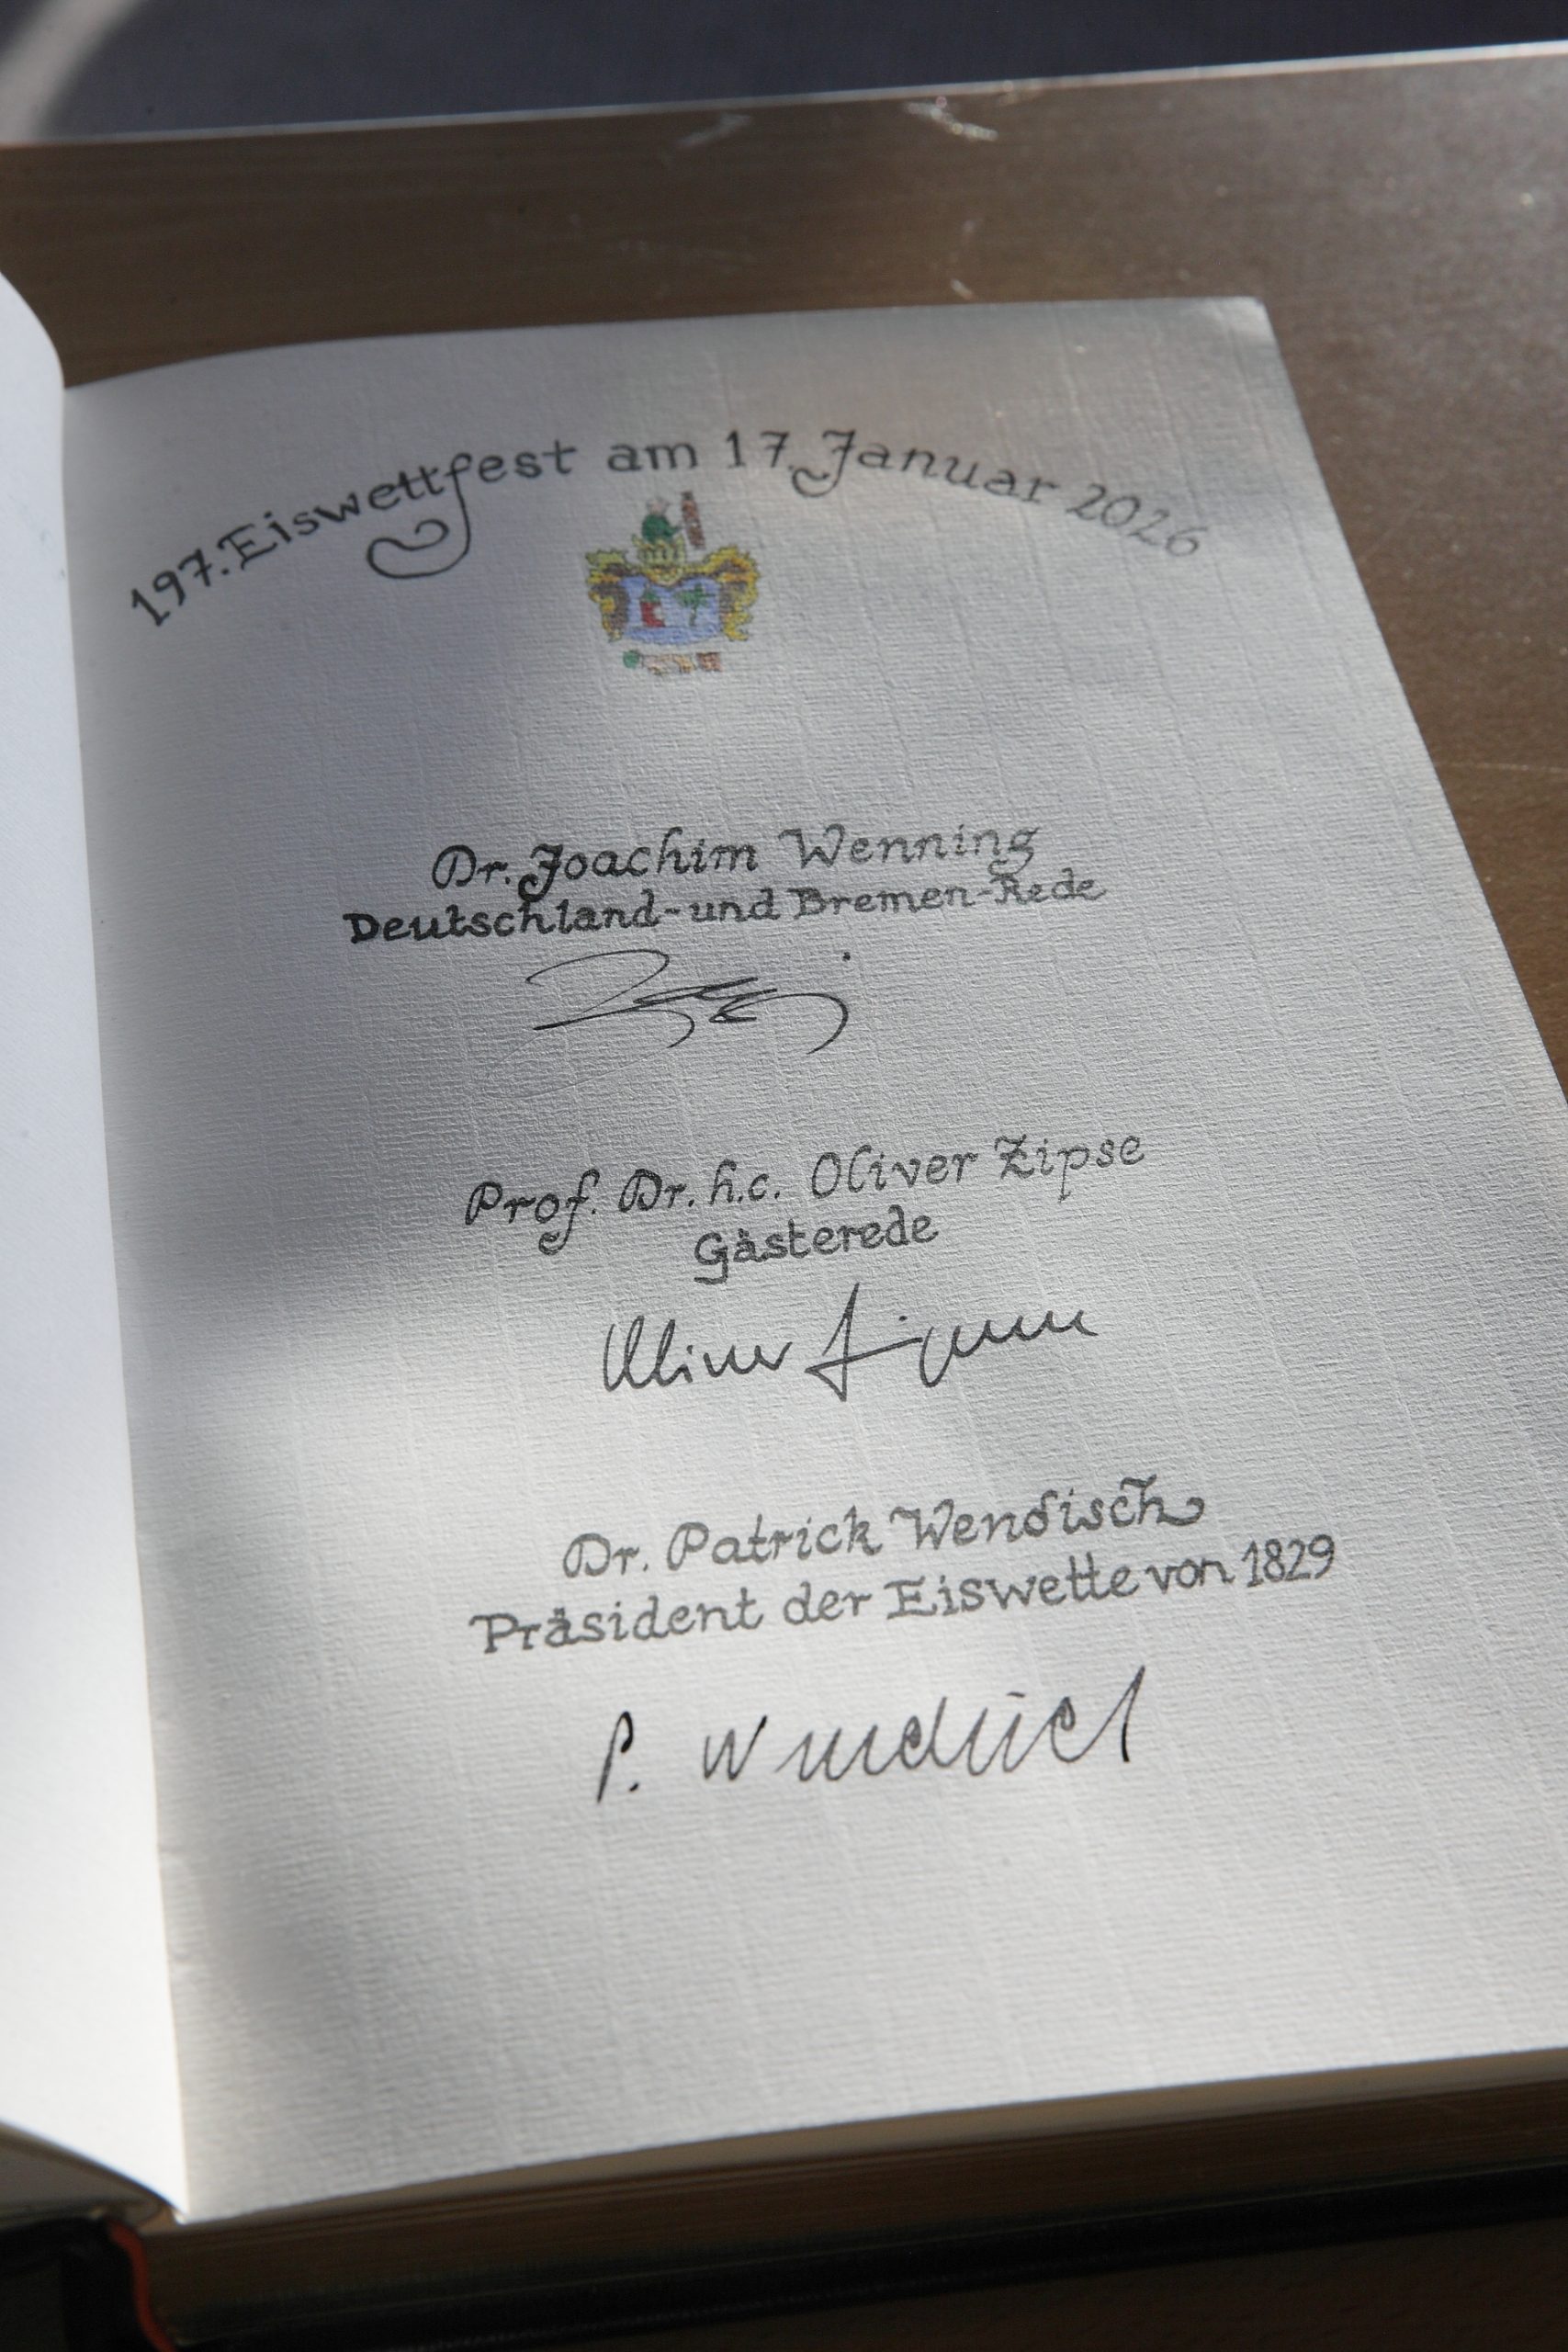 197. Eiswettfest am 17. Januar 2026
Dr. Joachim Wenning
Deutschland- und Bremen-Rede
Prof. Dr. h.c. Oliver Zipse
Gästerede
Oliver Zipse
Dr. Patrick Wendisch
Präsident der Eiswette von 1829
P. Wendisch